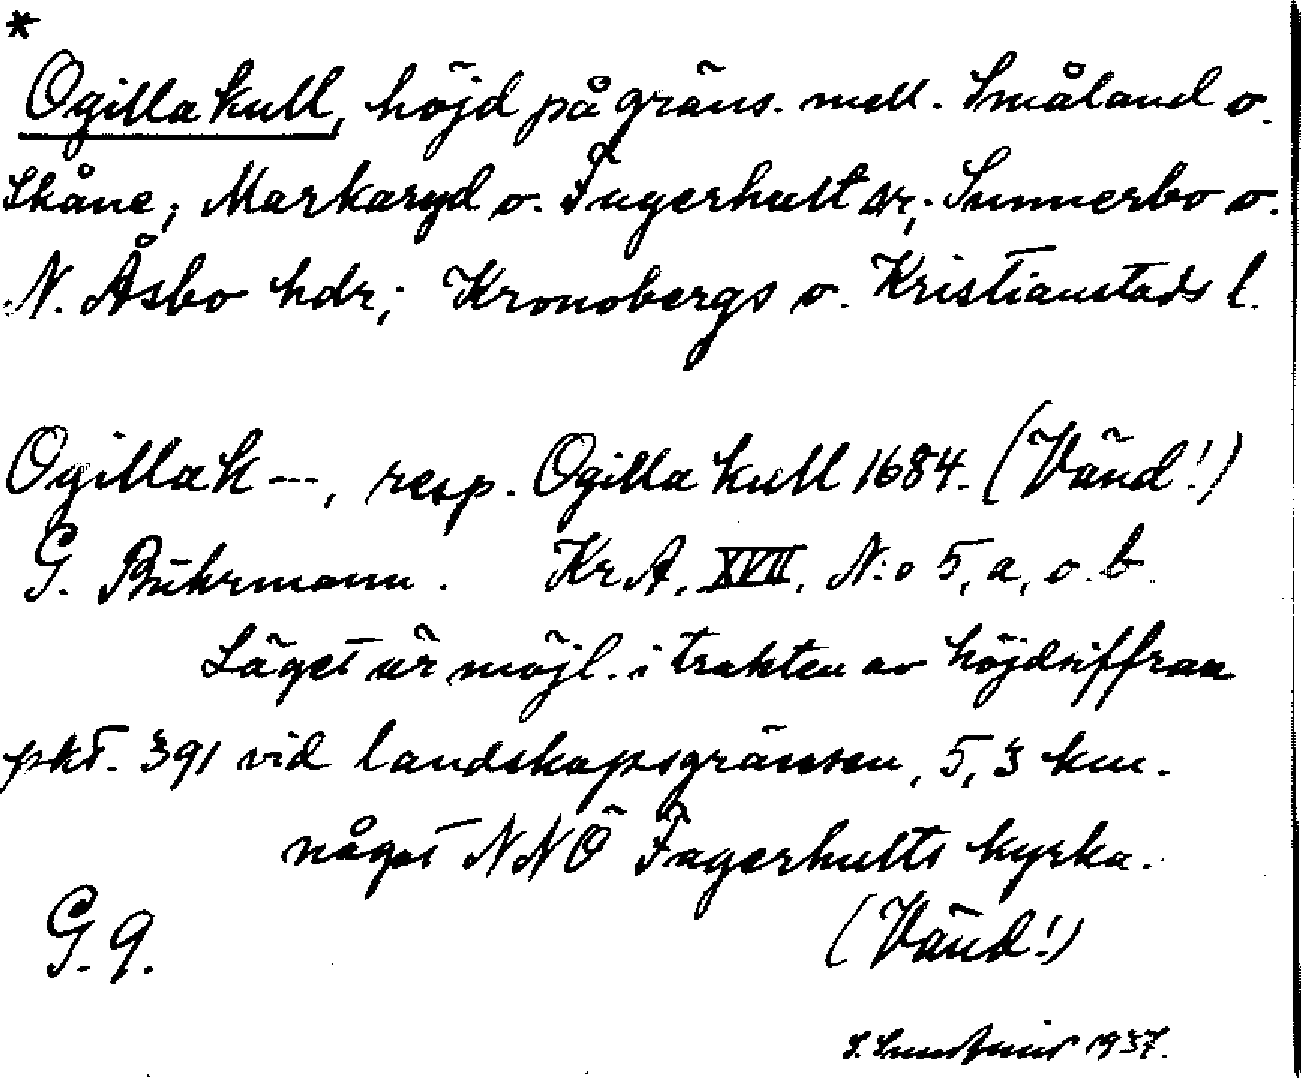 *
Ogilla kull, höjd på gräns. mell. Småland o.
Skåne; Markaryd o. Fagerhult snr; Sunnerbo o.
N. Åsbo hdr; Kronobergs o. Kristianstads l.
Ogilla k---, resp. Ogilla kull 1684. (Vänd!)
G. Buhrmann. Kr A. XVII. N:o 5, a, o. b.
Läget är möjl. i trakten av höjdsiffran
pkt. 391 vid landskapsgränsen, 5,3 km.
något NNÖ Fagerhults kyrka.
G. 9. (Vänd!)
1937.